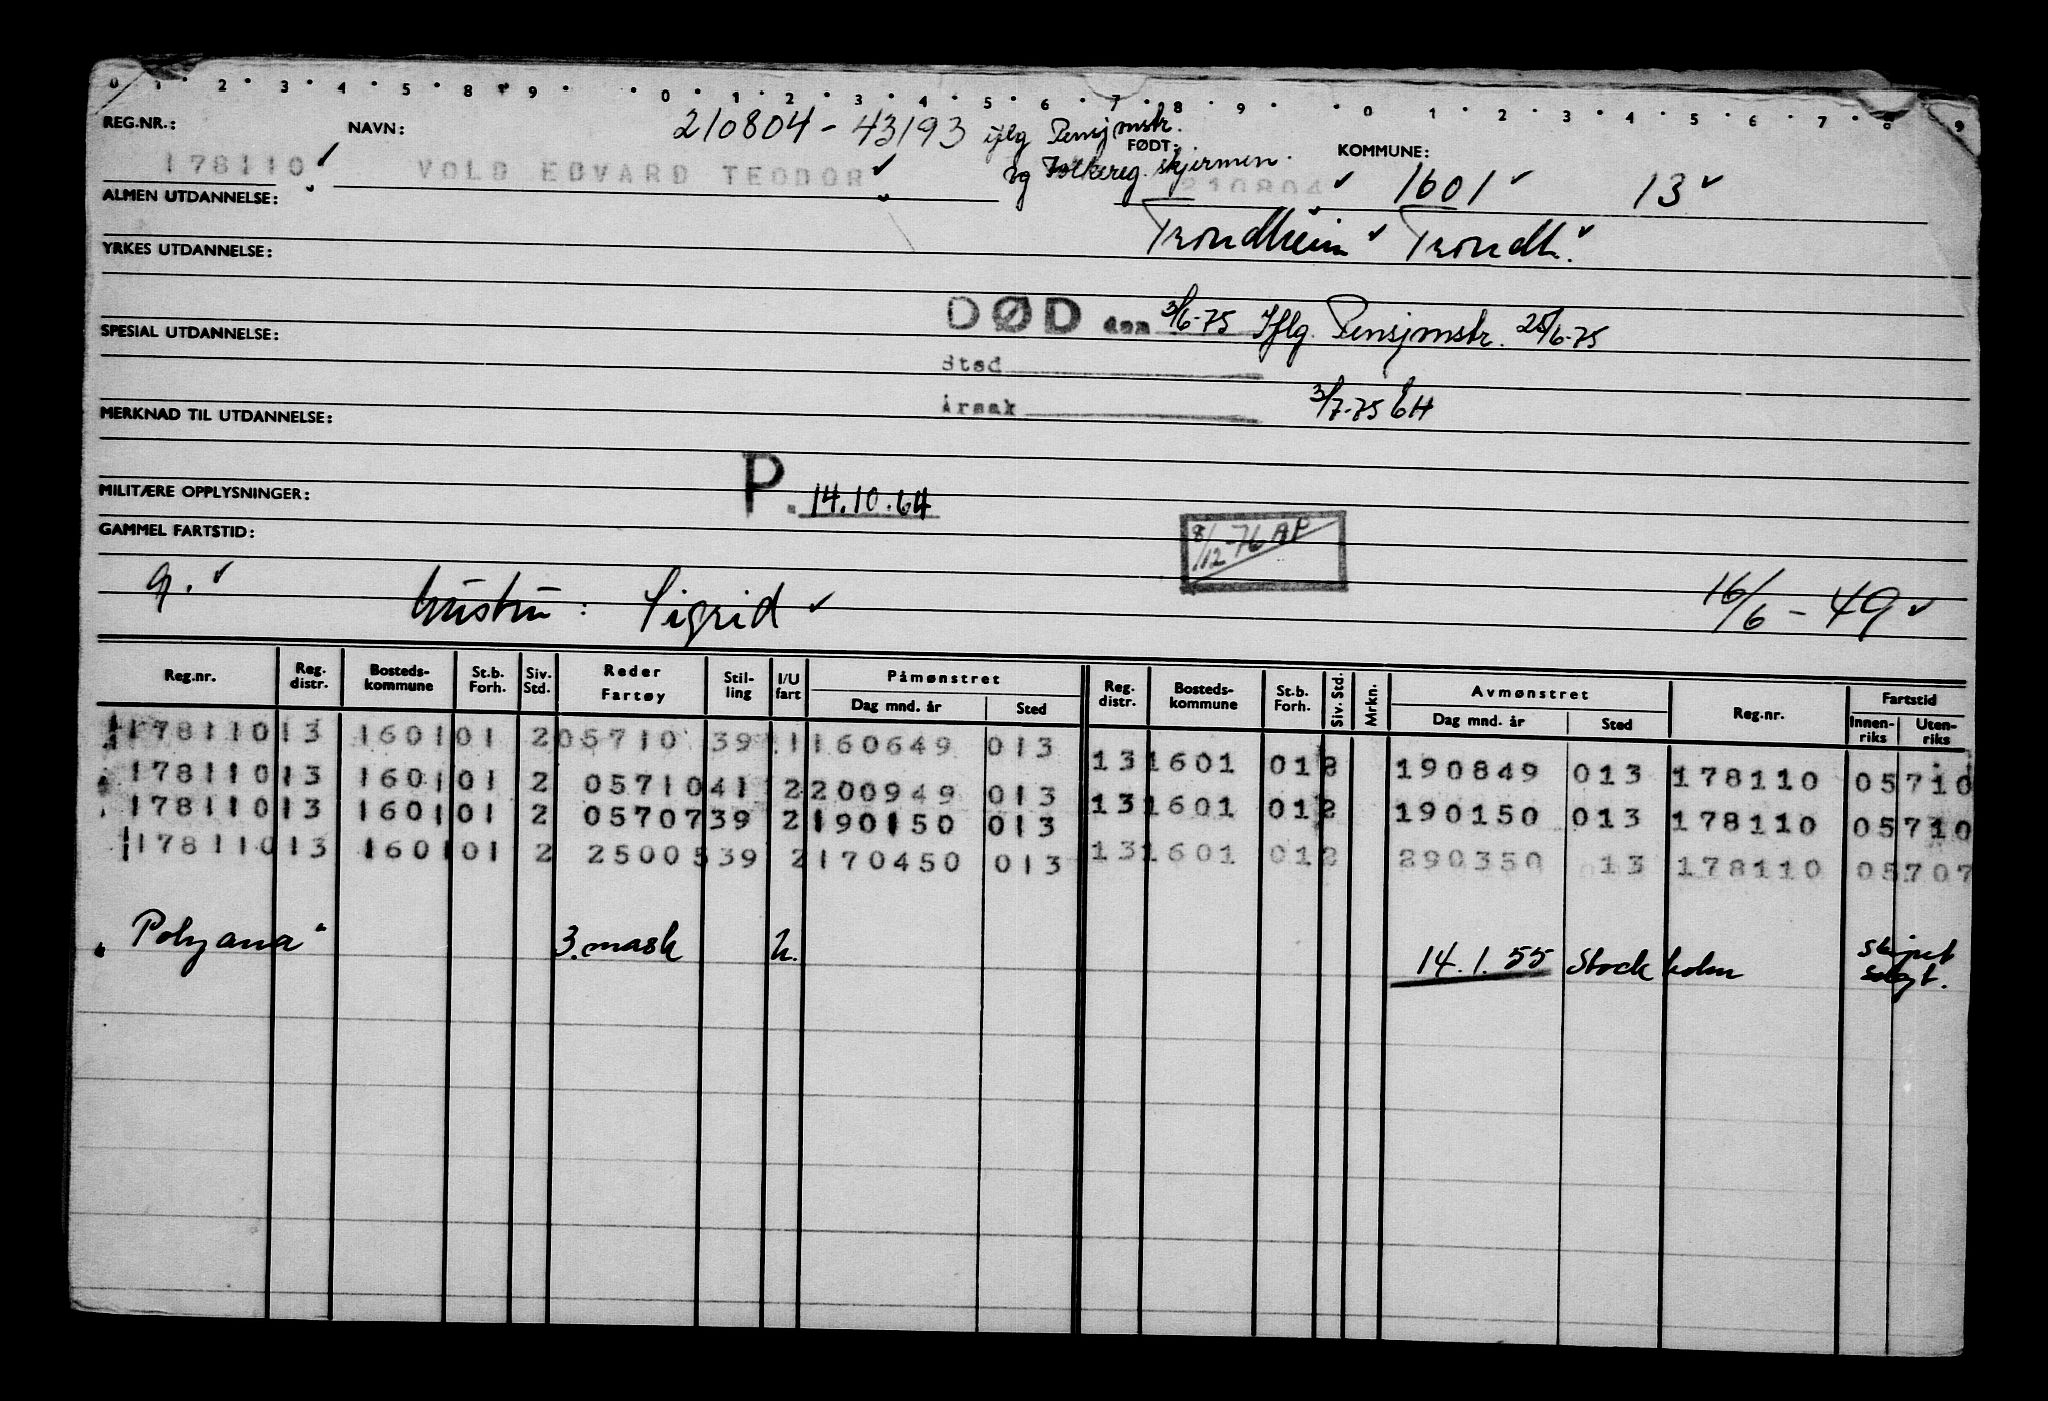 0 1 2 3 4 5 8 9 0 1 2 3 4 5 6 7 8 9 0 1 2 3 4 5 6 7 8 9
REG.NR.: NAVN: 210804 - 43193 iflg Pensjmstr. FØDT: KOMMUNE:
178110 VOLD EDVARD TEODOR og Folkereg. skjermen. 210804 1601 13
ALMEN UTDANNELSE: Trondheim Trondh.
YRKES UTDANNELSE:
DØD den 3/6-75 Iflg. Pensjmstr. 25/6-75
SPESIAL UTDANNELSE:
Sted
Årsak 3/7-75 EH
MERKNAD TIL UTDANNELSE:
P. 14.10.64
MILITÆRE OPPLYSNINGER:
GAMMEL FARTSTID: 8/12-76 AP
g. hustru: Sigrid 16/6-49
Reg.nr. Reg. distr. Bosteds-kommune St.b. Forh. Siv. Std. Reder Fartøy Stil-ling I/U fart Påmønstret Dag mnd. år Sted Reg. distr. Bosteds-kommune St.b. Forh. Siv. Std. Mrkn. Avmønstret Dag mnd. år Sted Reg.nr. Fartstid Innen-riks Uten-riks
178110 13 1601 01 2 05710 39 1 160649 013
13 1601 01 2 190849 013 178110 05710
178110 13 1601 01 2 05710 41 2 200949 013
13 1601 01 2 190150 013 178110 05710
178110 13 1601 01 2 05707 39 2 190150 013
13 1601 01 2 290350 13 178110 05707
178110 13 1601 01 2 25005 39 2 170450 013
"Polyana" 3. mask U. 14.1.55 Stockholm skipet solgt.